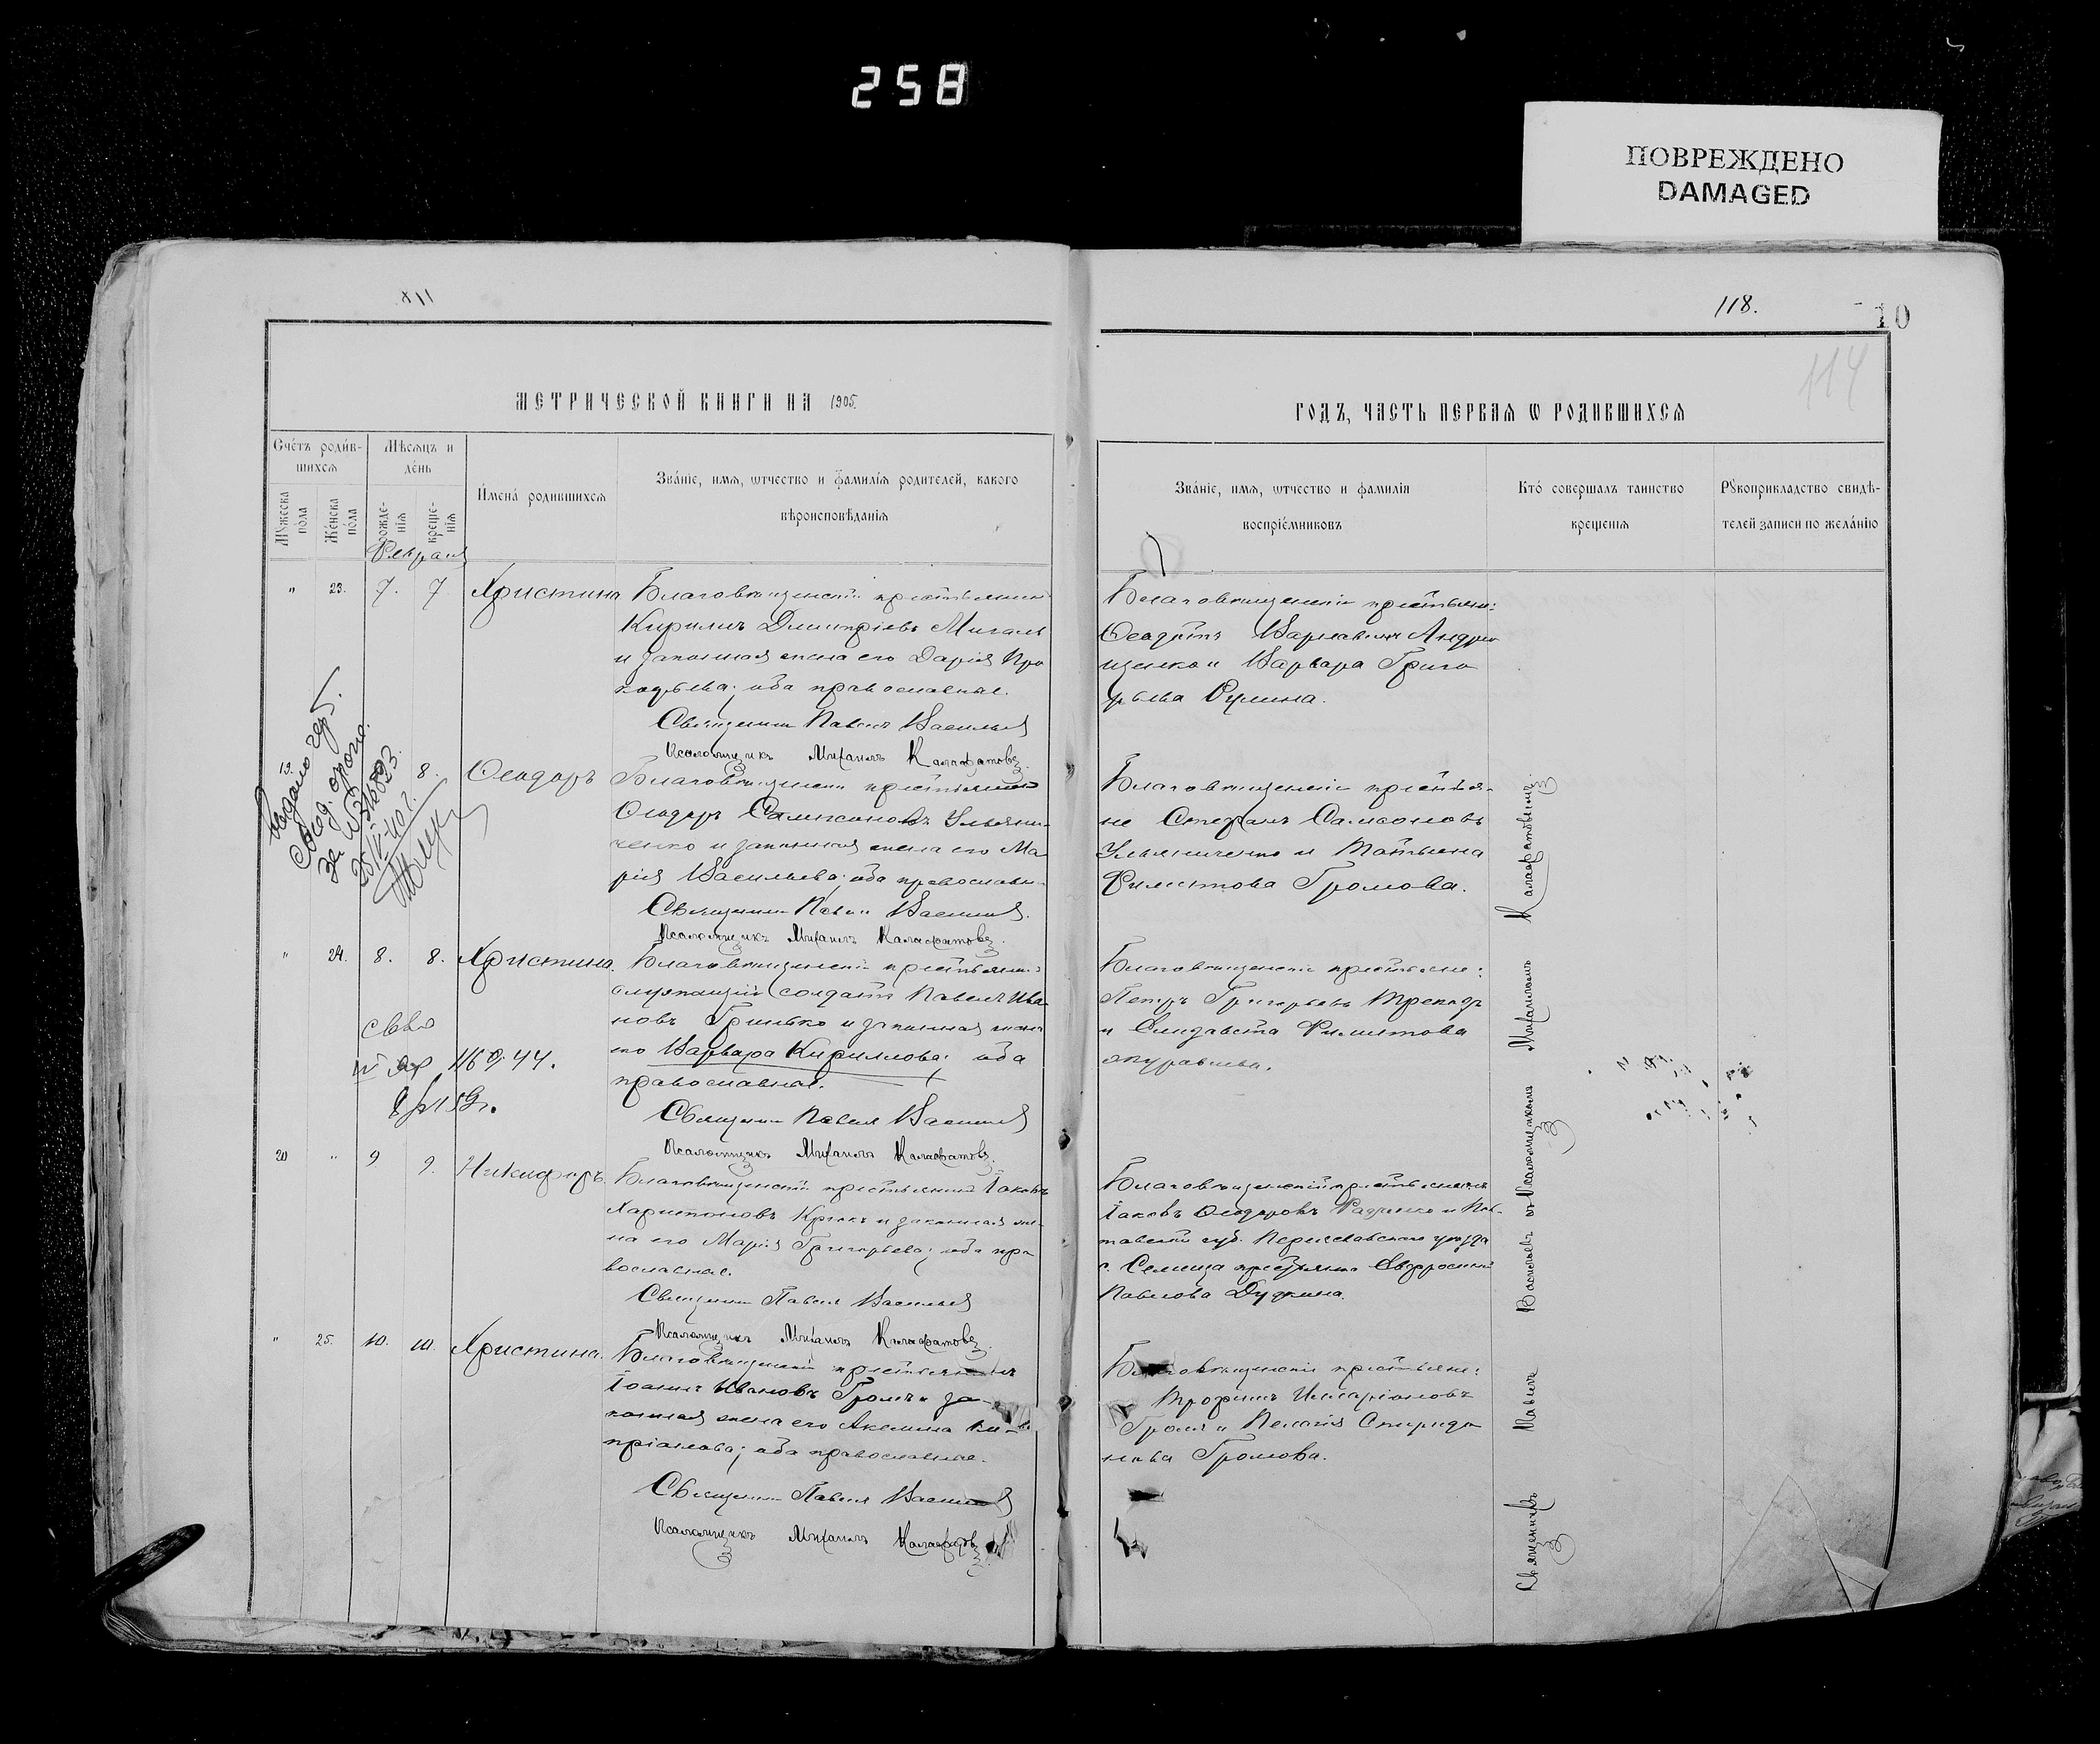 258
ПОВРЕЖДЕНО
DAMAGED
XII
118.
10
114
МЕТРИЧЕСКОЙ КНИГИ НА 1905.
ГОДЪ, ЧАСТЬ ПЕРВАѦ Ѡ РОДИВШИХСѦ
Счéтъ роди́в-
шихсѧ
Мѣсѧцъ и
де́нь
Мꙋжеска
по́ла
Же́нска
по́ла
рожде-
нїѧ
креще-
нїѧ
И҆мена́ родившихсѧ
Зва́нїе, имѧ, ѡтчество и фами́лїѧ родителей, какого
вѣроисповѣданїѧ
Зва́нїе, имѧ, ѡтчество и фамилїѧ
воспрїе́мниковъ
Кто́ совершалъ таинство
крещенїѧ
Рꙋкоприкладство свидѣ-
телей записи по жела́нїю
Февраля
" 23. 7. 7 Христина
Благовѣщенскій крестьянинъ
Кириллъ Димитріевъ
и законная жена его Дарія Про
кофьева; оба православные.
Священникъ Павелъ Васильевъ
Псаломщикъ Михаилъ Калафатовъ.
Благовѣщенскіе крестьяне:
Ѳеодотъ Варлавинъ Андрю
щенко и Варвара Григо
рьева
19. 8. Ѳеодоръ
Выдано
25/V-40 г.
Благовѣщенскій крестьянинъ
Ѳеодоръ Сампсоновъ Ульяни-
ченко и законная жена его Ма-
рія Васильева; оба православн.
Священникъ Павелъ Васильевъ.
Псаломщикъ Михаилъ Калафатовъ.
Благовѣщенскіе крестья-
не Стефанъ Самсоновъ
Ульяниченко и Татьяна
Филиппова Громова.
" 24. 8. 8. Христина.
Благовѣщенскій крестьянинъ
служащій солдатъ Павелъ Ива-
новъ Гринько и законная жена
его Варвара Кириллова; оба
православные.
Священникъ Павелъ Васильевъ
Псаломщикъ Михаилъ Калафатовъ.
Благовѣщенскіе крестьяне:
Петръ Григорьевъ
и Елизавета Филиппова
Журавлева.
20 " 9 9. Никифоръ.
Благовѣщенскій крестьянинъ Іаковъ
Харитоновъ Крюкъ и законная же-
на его Марія Григорьева; оба пра-
вославные.
Священникъ Павелъ Васильевъ
Псаломщикъ Михаилъ Калафатовъ.
Благовѣщенскій крестьянинъ
Іаковъ Ѳеодоровъ и Пол-
тавской губ. Переяславскаго уѣзда
с. Евфросинія
Павлова Дудкина.
" 25. 10. 10. Христина.
Благовѣщенскій крестьянинъ
Іоаннъ Ивановъ Громъ и за-
конная жена его Акилина Ки-
пріанова; оба православные.
Священникъ Павелъ Васильевъ
Псаломщикъ Михаилъ Калафатовъ
Благовѣщенскіе крестьяне:
Трофимъ Илларіоновъ
Громъ и Пелагія Спиридо
нова Громова.
Священникъ Павелъ Васильевъ съ Псаломщикомъ Михаиломъ Калафатовымъ